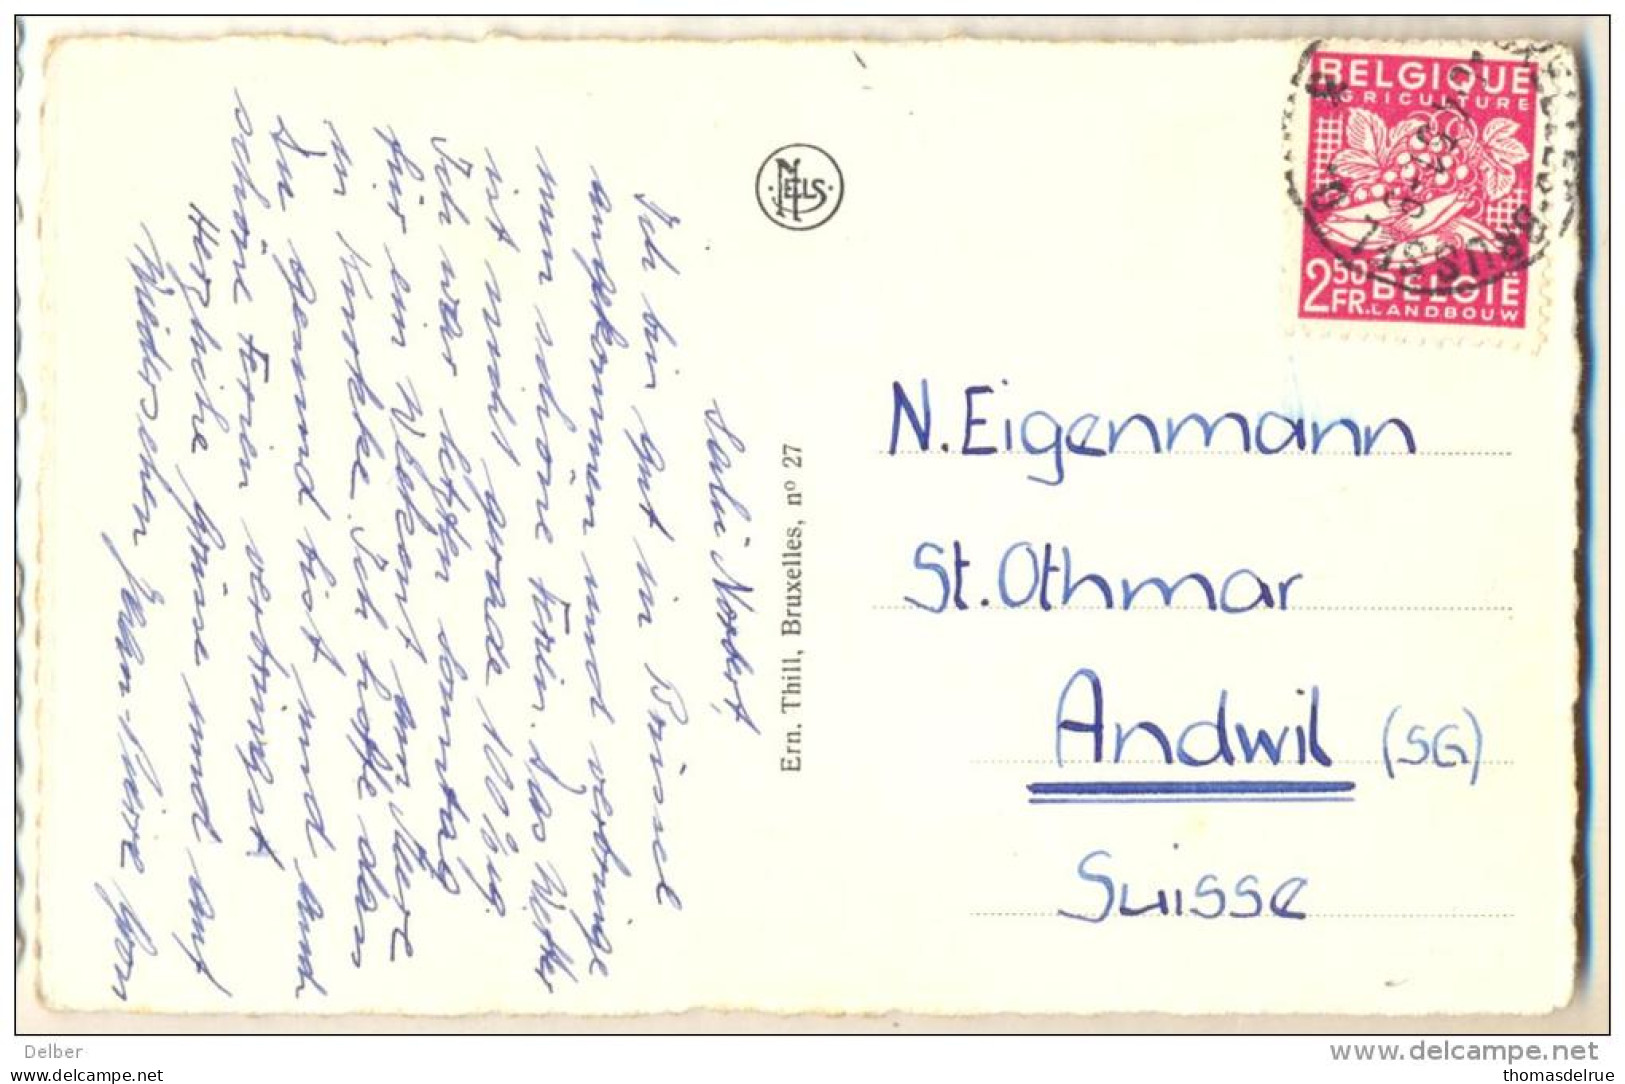 Salü Norbert,
Ich bin gut in Brüssel
angekommen und verbringe
nun schöne Ferien. Das Wetter
ist nicht gerade 100%ig.
Ich war letzten Sonntag
für ein Weekent am Meere
in Knokke. Ich hoffe dass
Du gesund bist und auch
schöne Ferien verbringst.
Herzliche Grüsse und auf
Wiedersehen Jean-Pierre
NELS
Ern. Thill, Bruxelles, nº 27
BELGIQUE
AGRICULTURE
2.50 FR.
BELGIE
LANDBOUW
BRUSSEL
N. Eigenmann
St. Othmar
Andwil (SG)
Suisse
Delber
www.delcampe.net
thomasdelrue